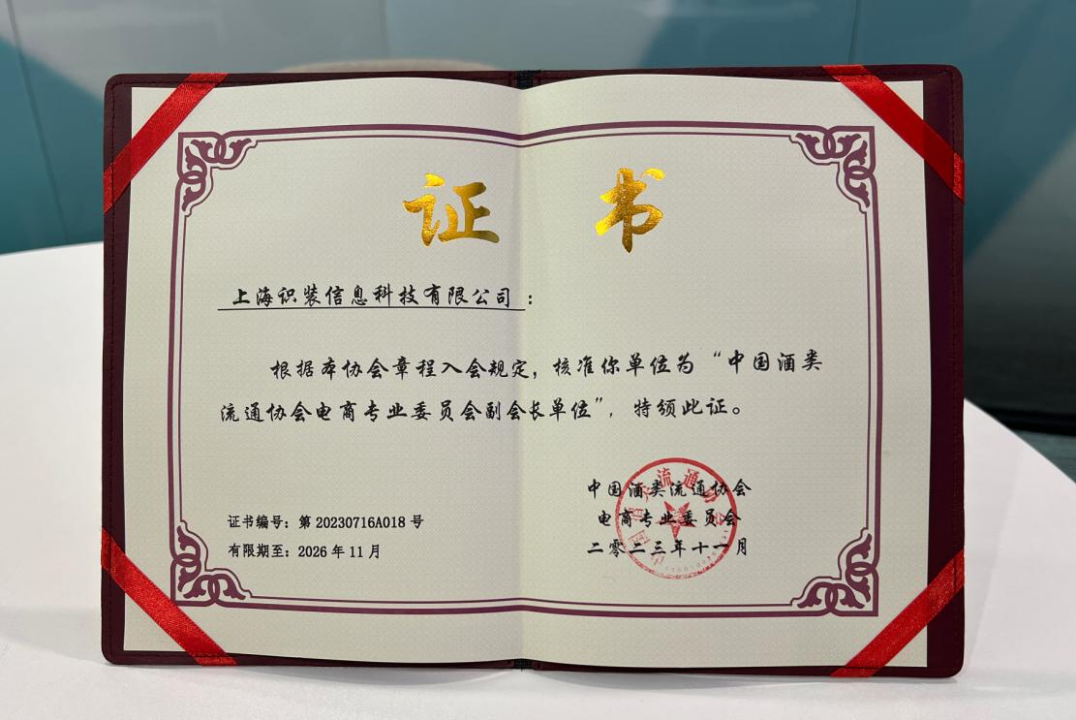 证书
上海识装信息科技有限公司：
根据本协会章程入会规定，核准你单位为“中国酒类
流通协会电商专业委员会副会长单位”，特颁此证。
中国酒类流通协会
电商专业委员会
二零二三年十一月
证书编号：第 20230716A018 号
有限期至：2026 年 11 月